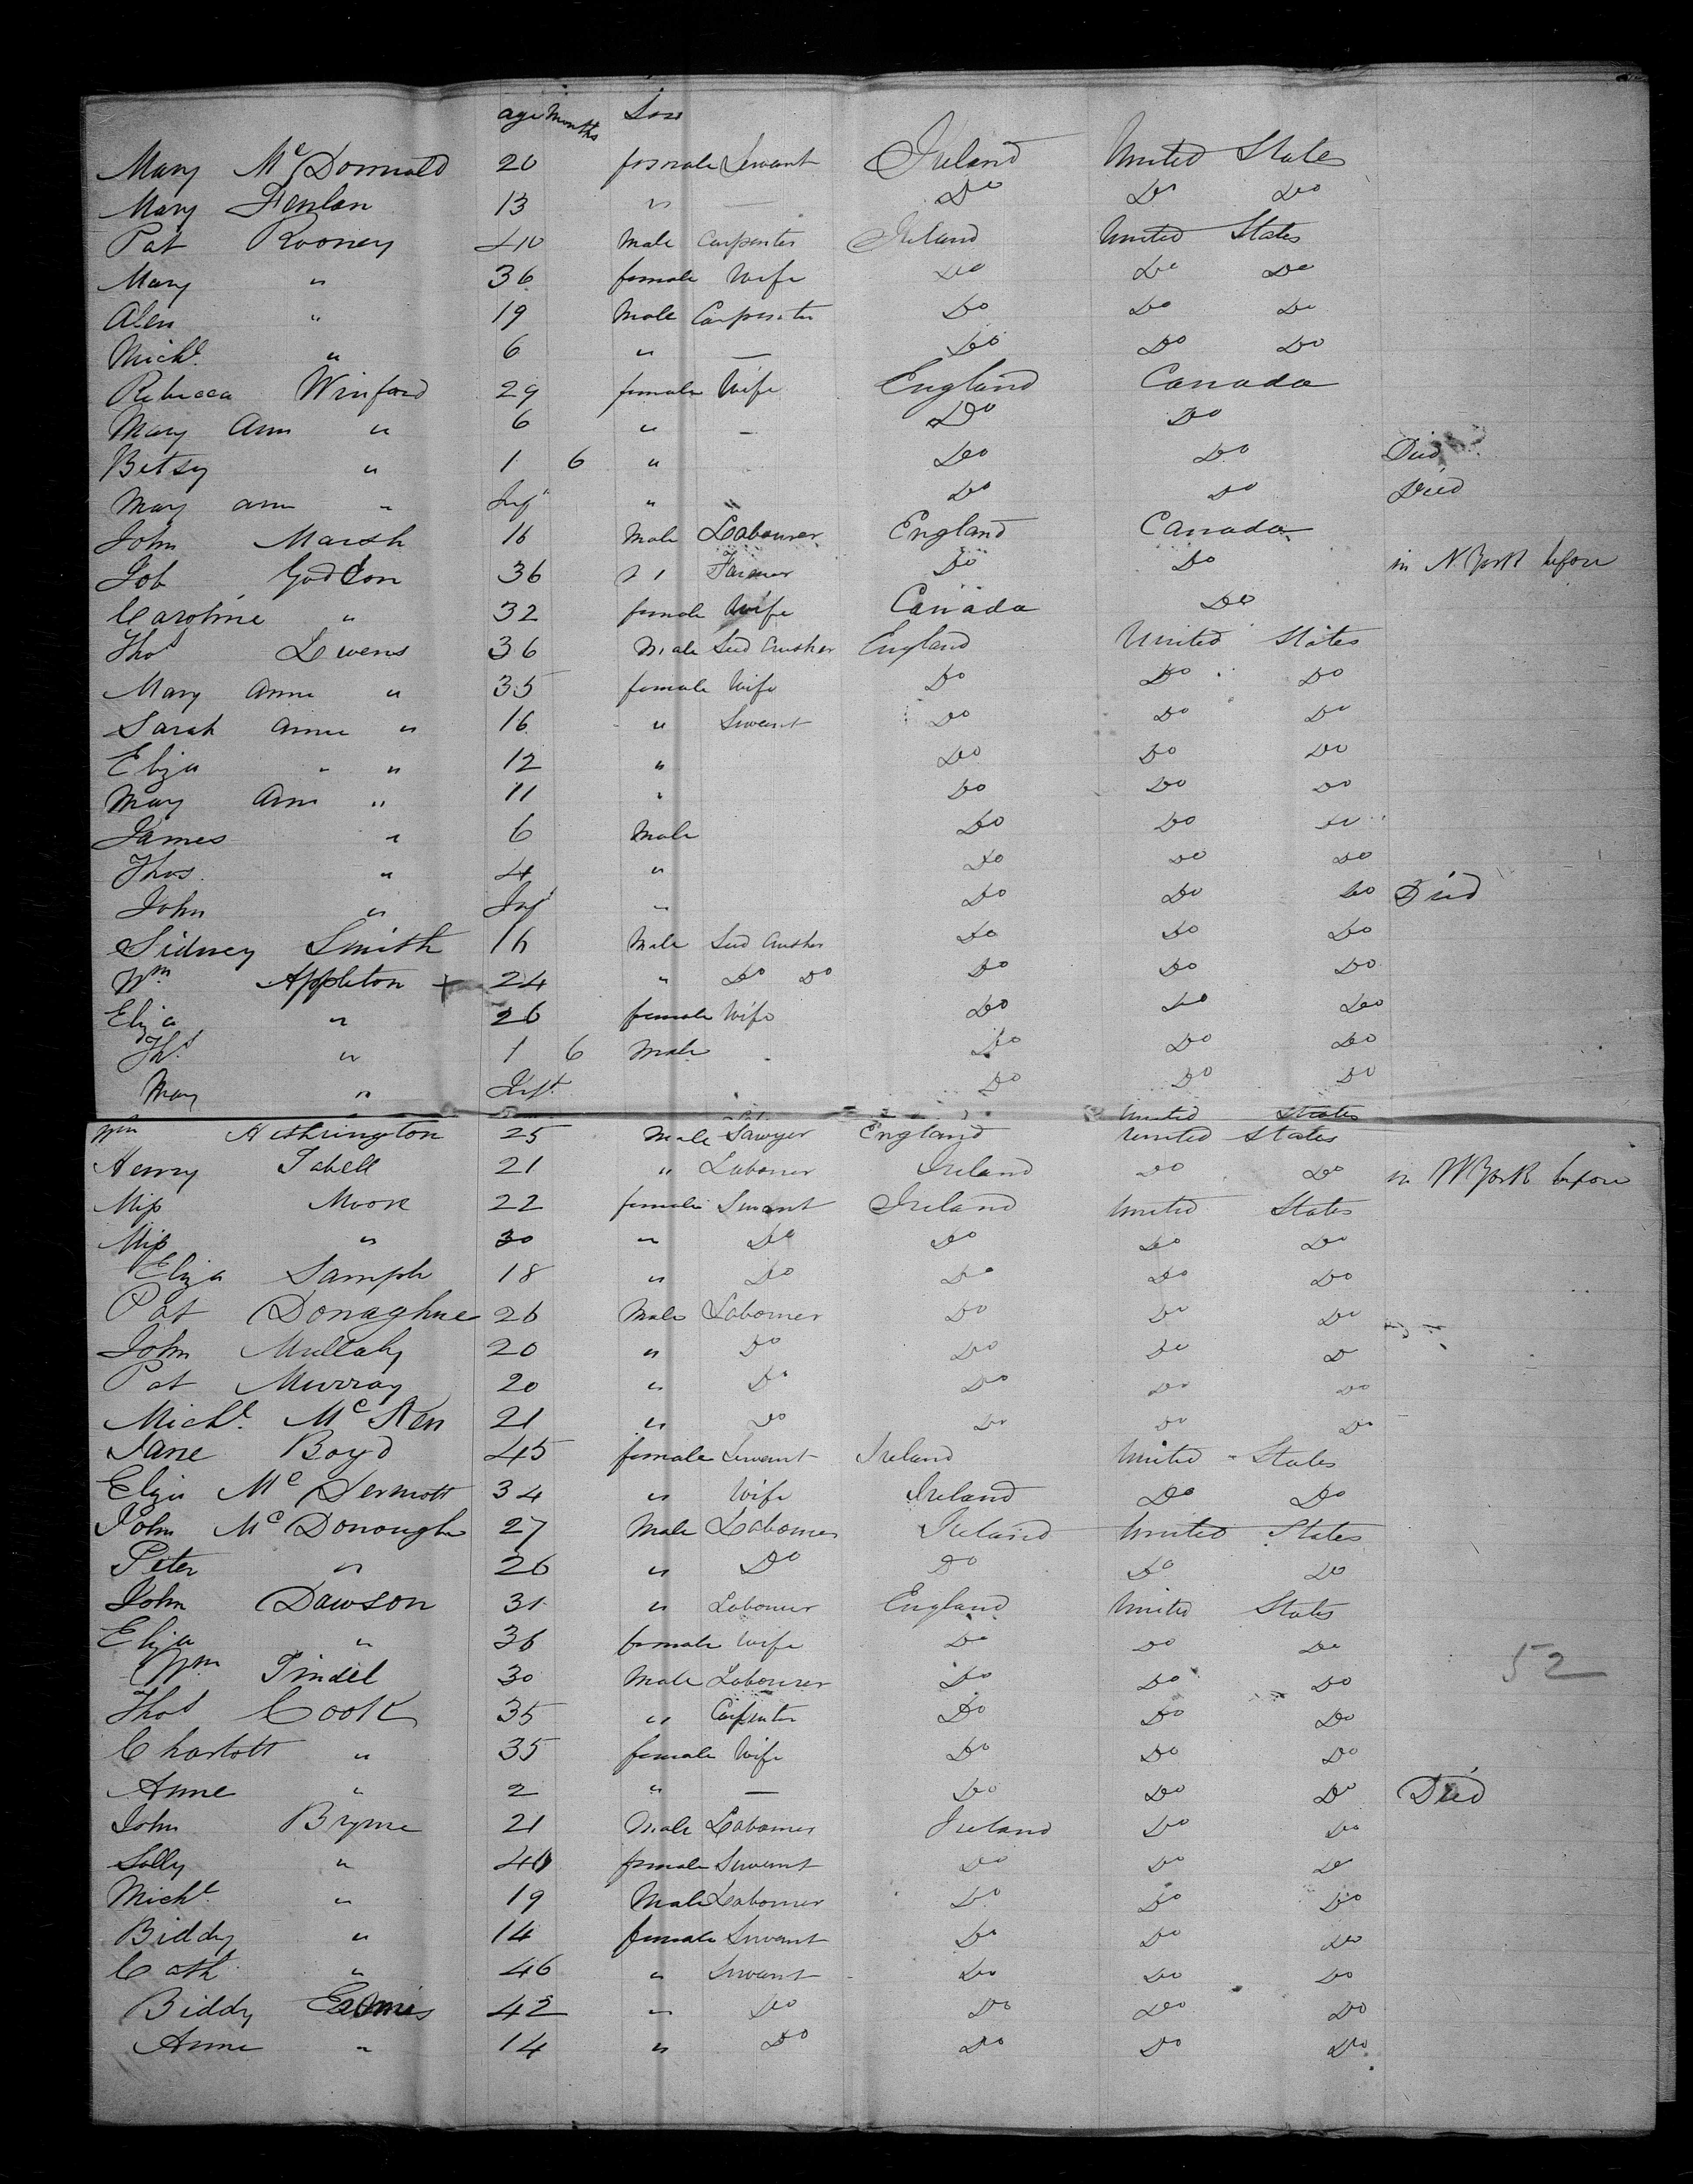 age Months Sex
Mary McDonnald 20 female Servant Ireland United States
Mary Fenlan 13 " — Do Do Do
Pat Rooney 40 Male Carpenter Ireland United States
Mary " 36 female Wife Do Do Do
Alen " 19 Male Carpenter Do Do Do
Michl " 6 " — Do Do Do
Rebecca Winford 29 female Wife England Canada
Mary Ann " 6 " — Do Do
Betsy " 1 6 " Do Do Died
Mary ann " Inft " " Do Do Died
John Marsh 16 Male Labourer England Canada
Job Goddon 36 " Farmer Do Do in N. York before
Caroline " 32 female Wife Canada Do
Thos Lewens 36 Male Seed Crusher England United States
Mary Anne " 35 female Wife Do Do Do
Sarah Anne " 16 " Servant Do Do Do
Eliza " " 12 " Do Do Do
Mary Ann " 11 " Do Do Do
James " 6 Male Do Do Do
Thos. " 4 " Do Do Do
John " Inf " Do Do Do Died
Sidney Smith 16 Male Seed Crusher Do Do Do
Wm Appleton + 24 " Do Do Do Do Do
Eliza " 26 female Wife Do Do Do
Ths " 1 6 Male Do Do Do
Mary " Inft Do Do Do
United States
Wm Hethrington 25 Male Sawyer England United States
Henry Tabell 21 " Labourer Ireland Do Do in N York before
Miss Moore 22 female Servant Ireland United States
Miss " 30 " Do Do Do Do
Eliza Sample 18 " Do Do Do Do
Pat Donaghue 26 Male Labourer Do Do Do
John Mullaly 20 " Do Do Do D
Pat Murray 20 " Do Do Do Do
Michl. Mc Ken 21 " Do Do Do Do
Jane Boyd 45 female Servant Ireland United States
Eliza McDermott 34 " Wife Ireland Do Do
John McDonough 27 Male Labourer Ireland United States
Peter " 26 " Do Do Do Do
John Dawson 31 " Labourer England United States
Eliza " 36 female Wife Do Do Do
Wm Tindel 30 Male Labourer Do Do Do 52
Thos Cook 35 " Carpenter Do Do Do
Charlott " 35 female Wife Do Do Do
Anne " 2 " — Do Do Do Died
John Bryne 21 Male Labourer Ireland Do Do
Sally " 40 female Servant Do Do Do
Michl " 19 Male Labourer Do Do Do
Biddy " 14 female Servant Do Do Do
Cath " 46 " Servant Do Do Do
Biddy 42 " Do Do Do Do
Anne " 14 " Do Do Do Do